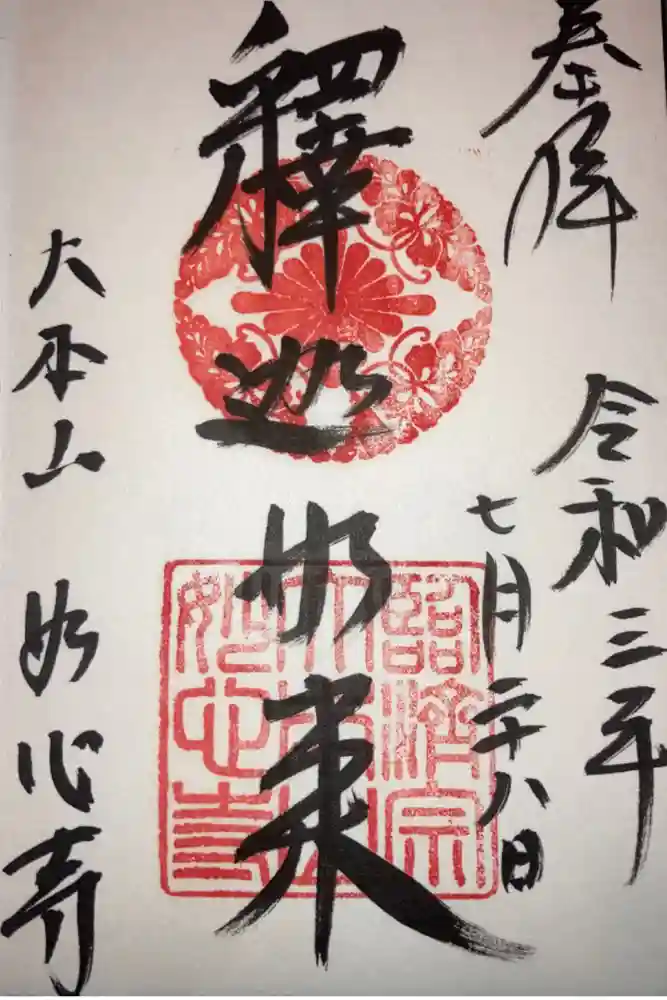 奉拝
令和三年
七月二十八日
釋迦如来
大本山 妙心寺
臨濟宗
大本山
妙心寺